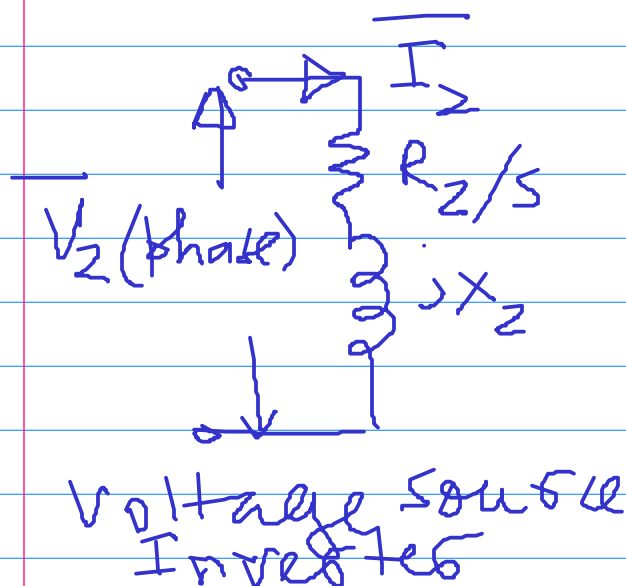 I2
R2/s
V2 (phase)
jX2
Voltage source
Inverter